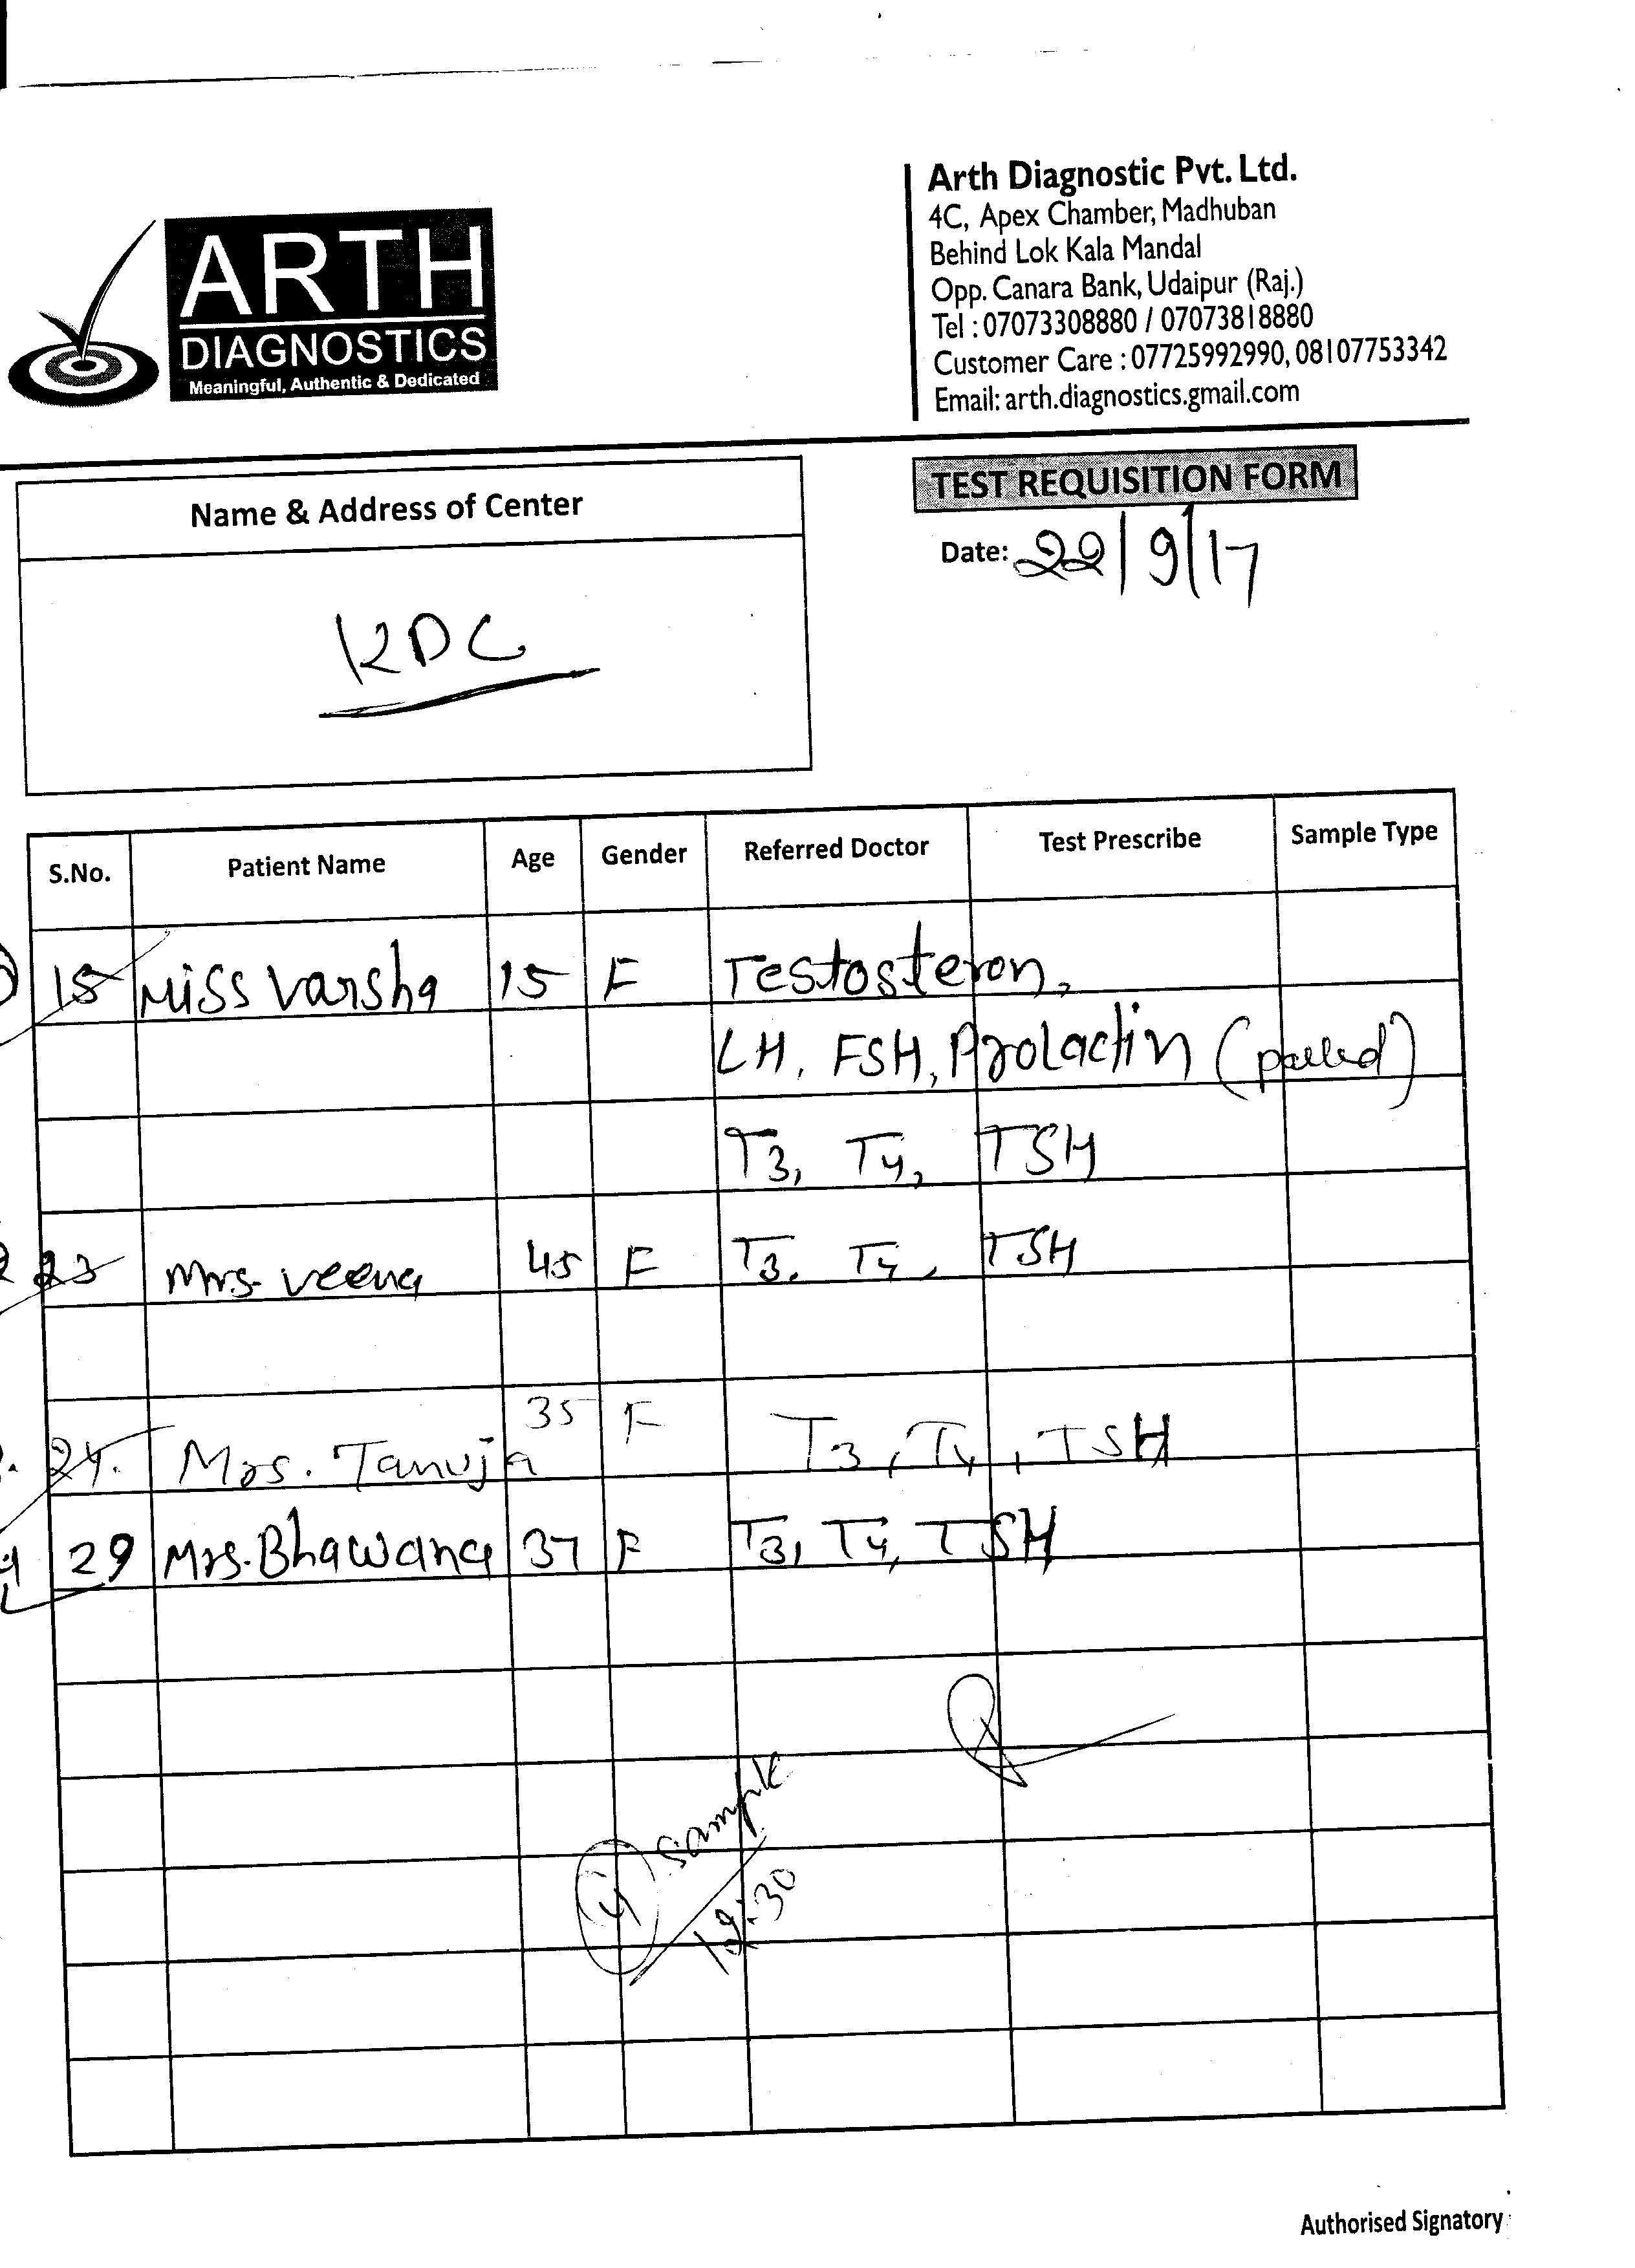 ARTH
DIAGNOSTICS
Meaningful, Authentic & Dedicated
Arth Diagnostic Pvt. Ltd.
4C, Apex Chamber, Madhuban
Behind Lok Kala Mandal
Opp. Canara Bank, Udaipur (Raj.)
Tel : 07073308880 / 07073818880
Customer Care : 07725992990, 08107753342
Email: arth.diagnostics.gmail.com
Name & Address of Center
KDC
TEST REQUISITION FORM
Date: 22/9/17
S.No. Patient Name Age Gender Referred Doctor Test Prescribe Sample Type
15 Miss Varsha 15 F Testosteron,
LH, FSH, Prolactin
T3, T4, TSH
23 Mrs. Veena 45 F T3, T4, TSH
24. Mrs. Tanuja 35 F T3, T4, TSH
29 Mrs. Bhawana 37 F T3, T4, TSH
4 sample
Authorised Signatory